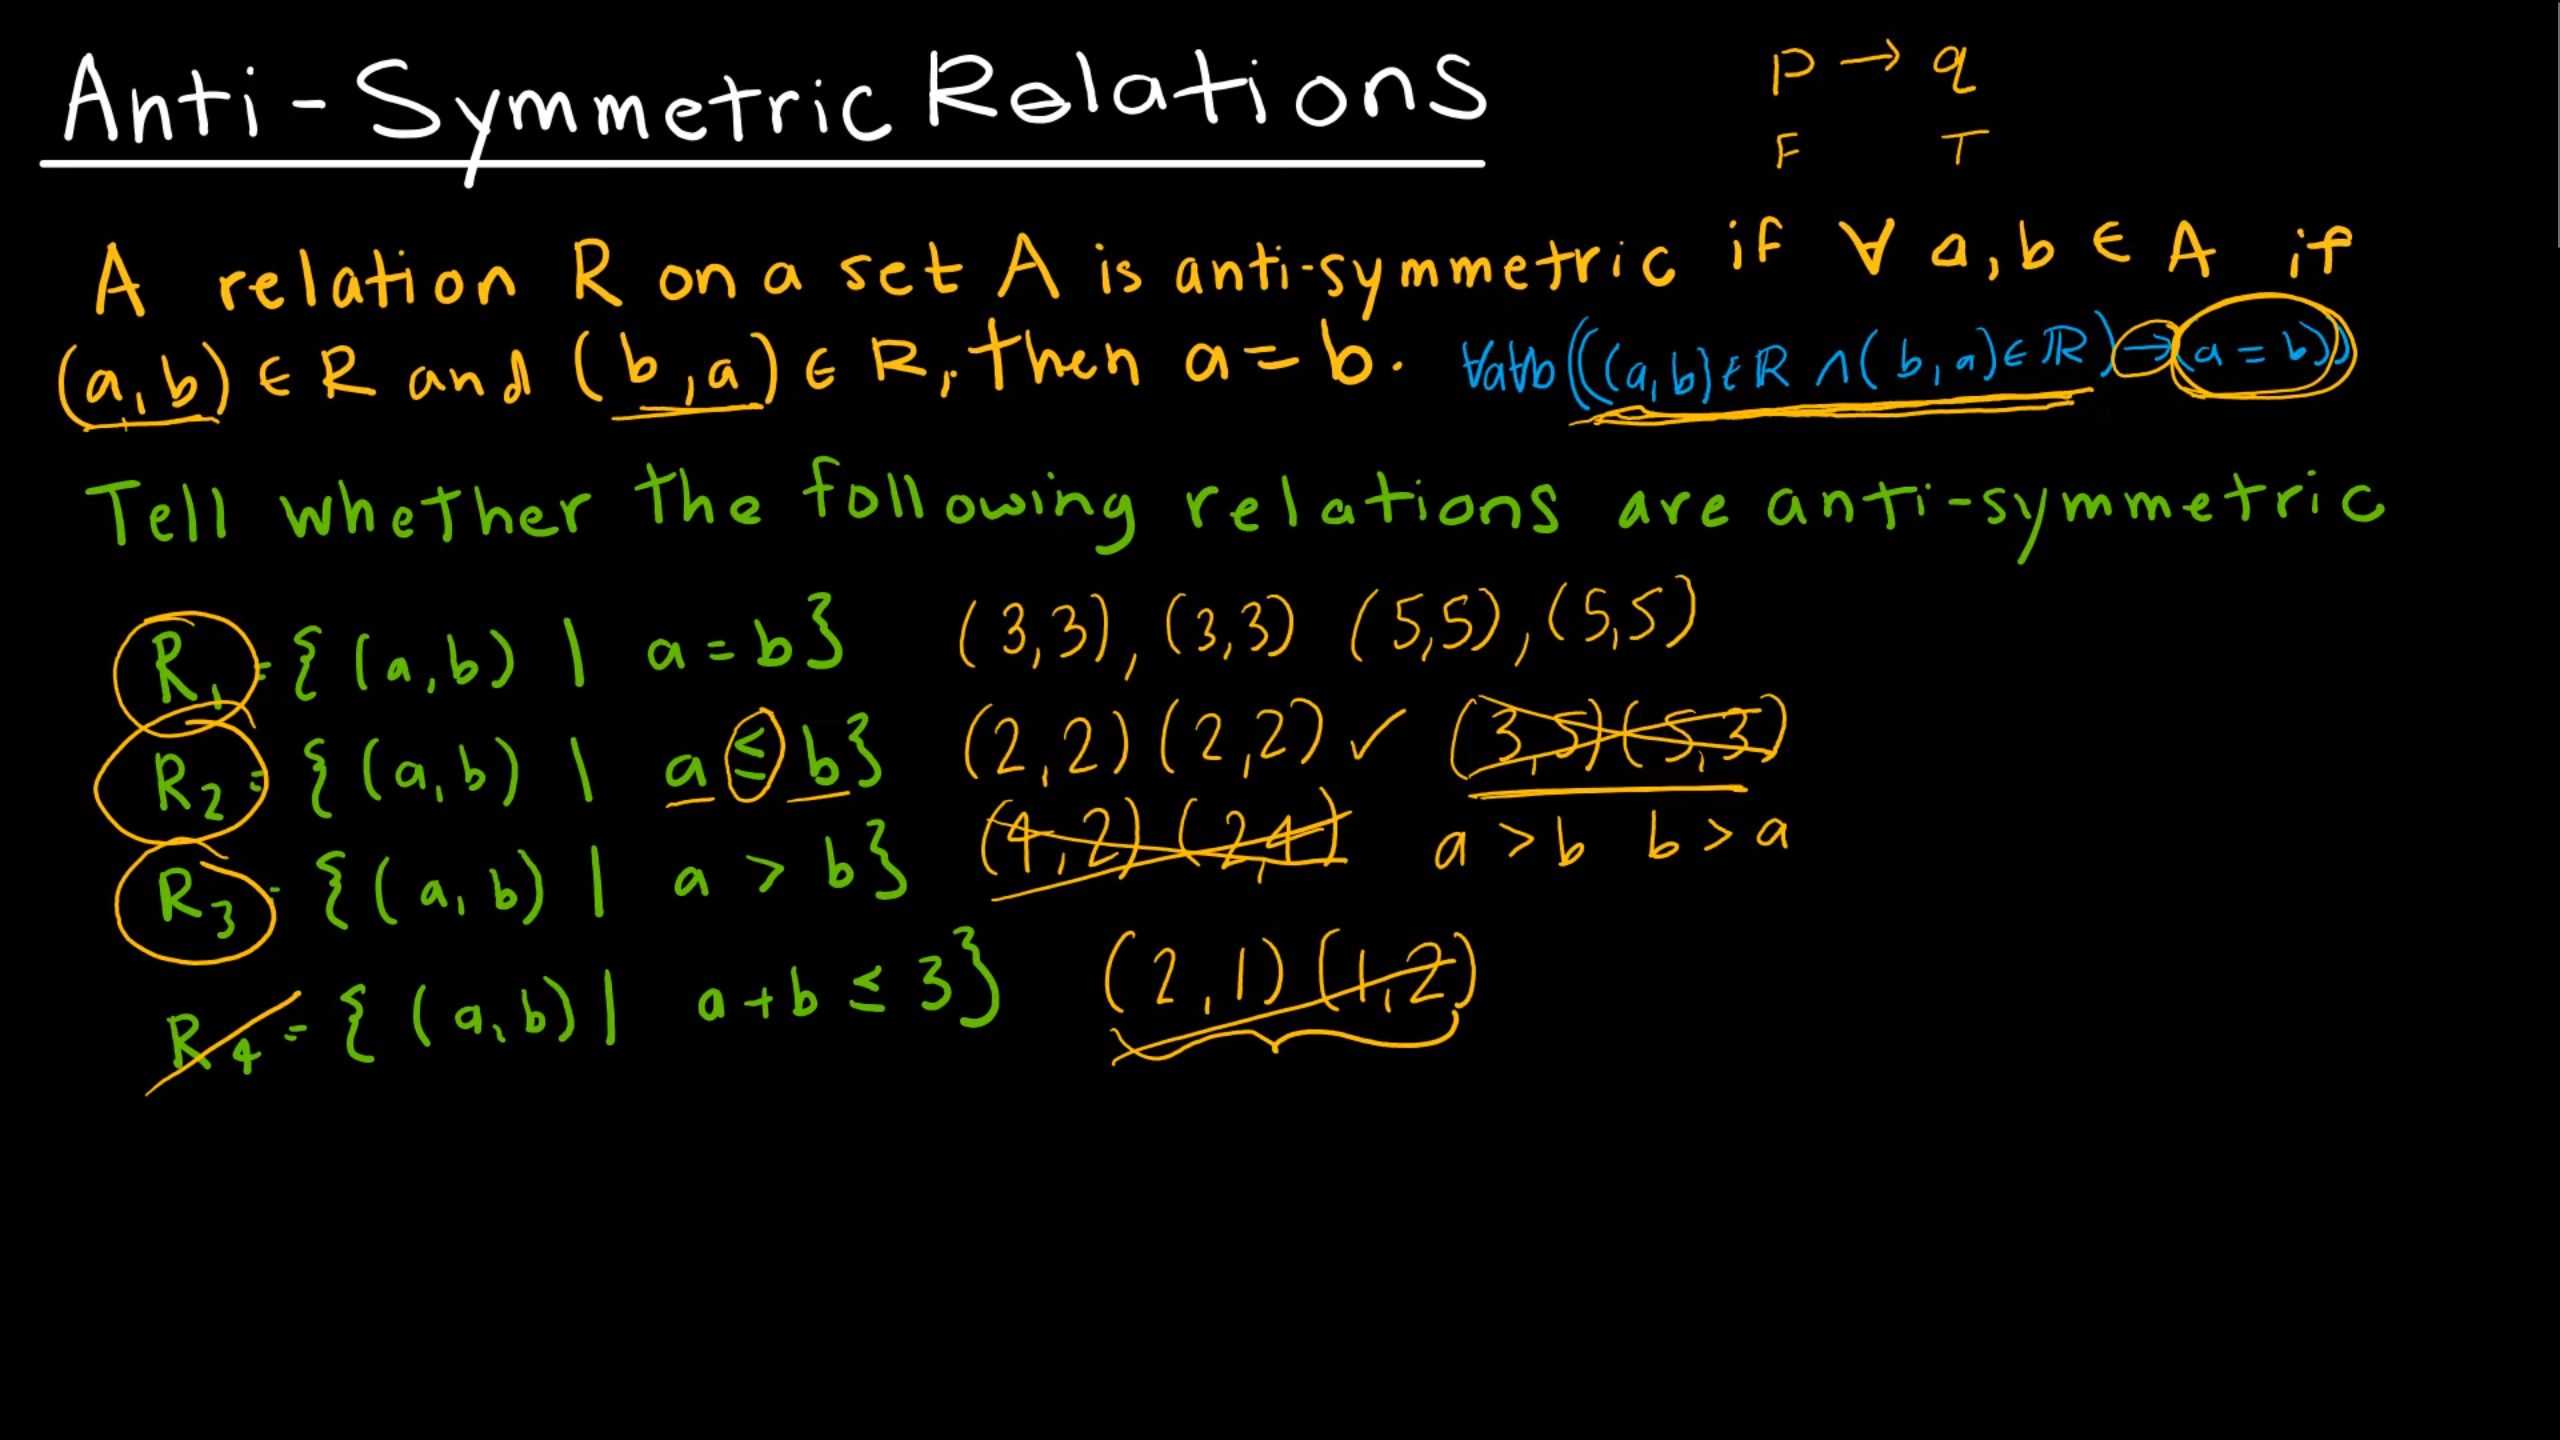 Anti-Symmetric Relations
P → q
F T
A relation R on a set A is anti-symmetric if ∀ a, b ∈ A if
(a,b) ∈ R and (b,a) ∈ R, then a = b. ∀a∀b(((a,b)∈R ∧ (b,a)∈R) → (a = b))
Tell whether the following relations are anti-symmetric
R1 = {(a,b) | a = b} (3,3), (3,3) (5,5), (5,5)
R2 = {(a,b) | a ≤ b} (2,2) (2,2) ✓ (3,5) (5,3)
R3 = {(a,b) | a > b} (4,2) (2,4) a > b b > a
R4 = {(a,b) | a + b ≤ 3} (2,1) (1,2)